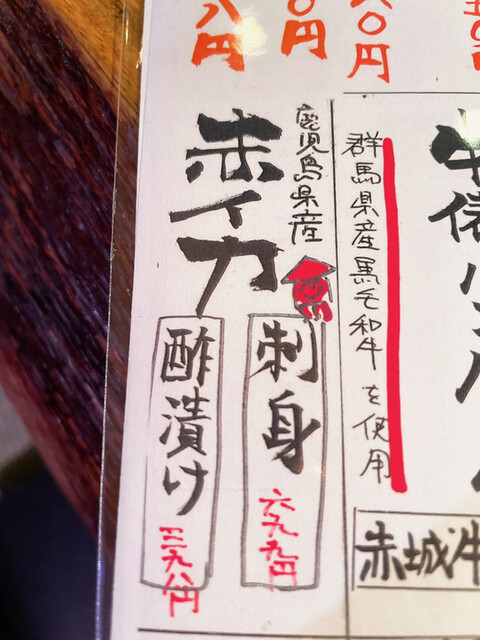 〇円
〇円
八円
群馬県産黒毛和牛を使用
赤城牛
鹿児島県産
赤イカ
刺身
六九九円
酢漬け
九八円